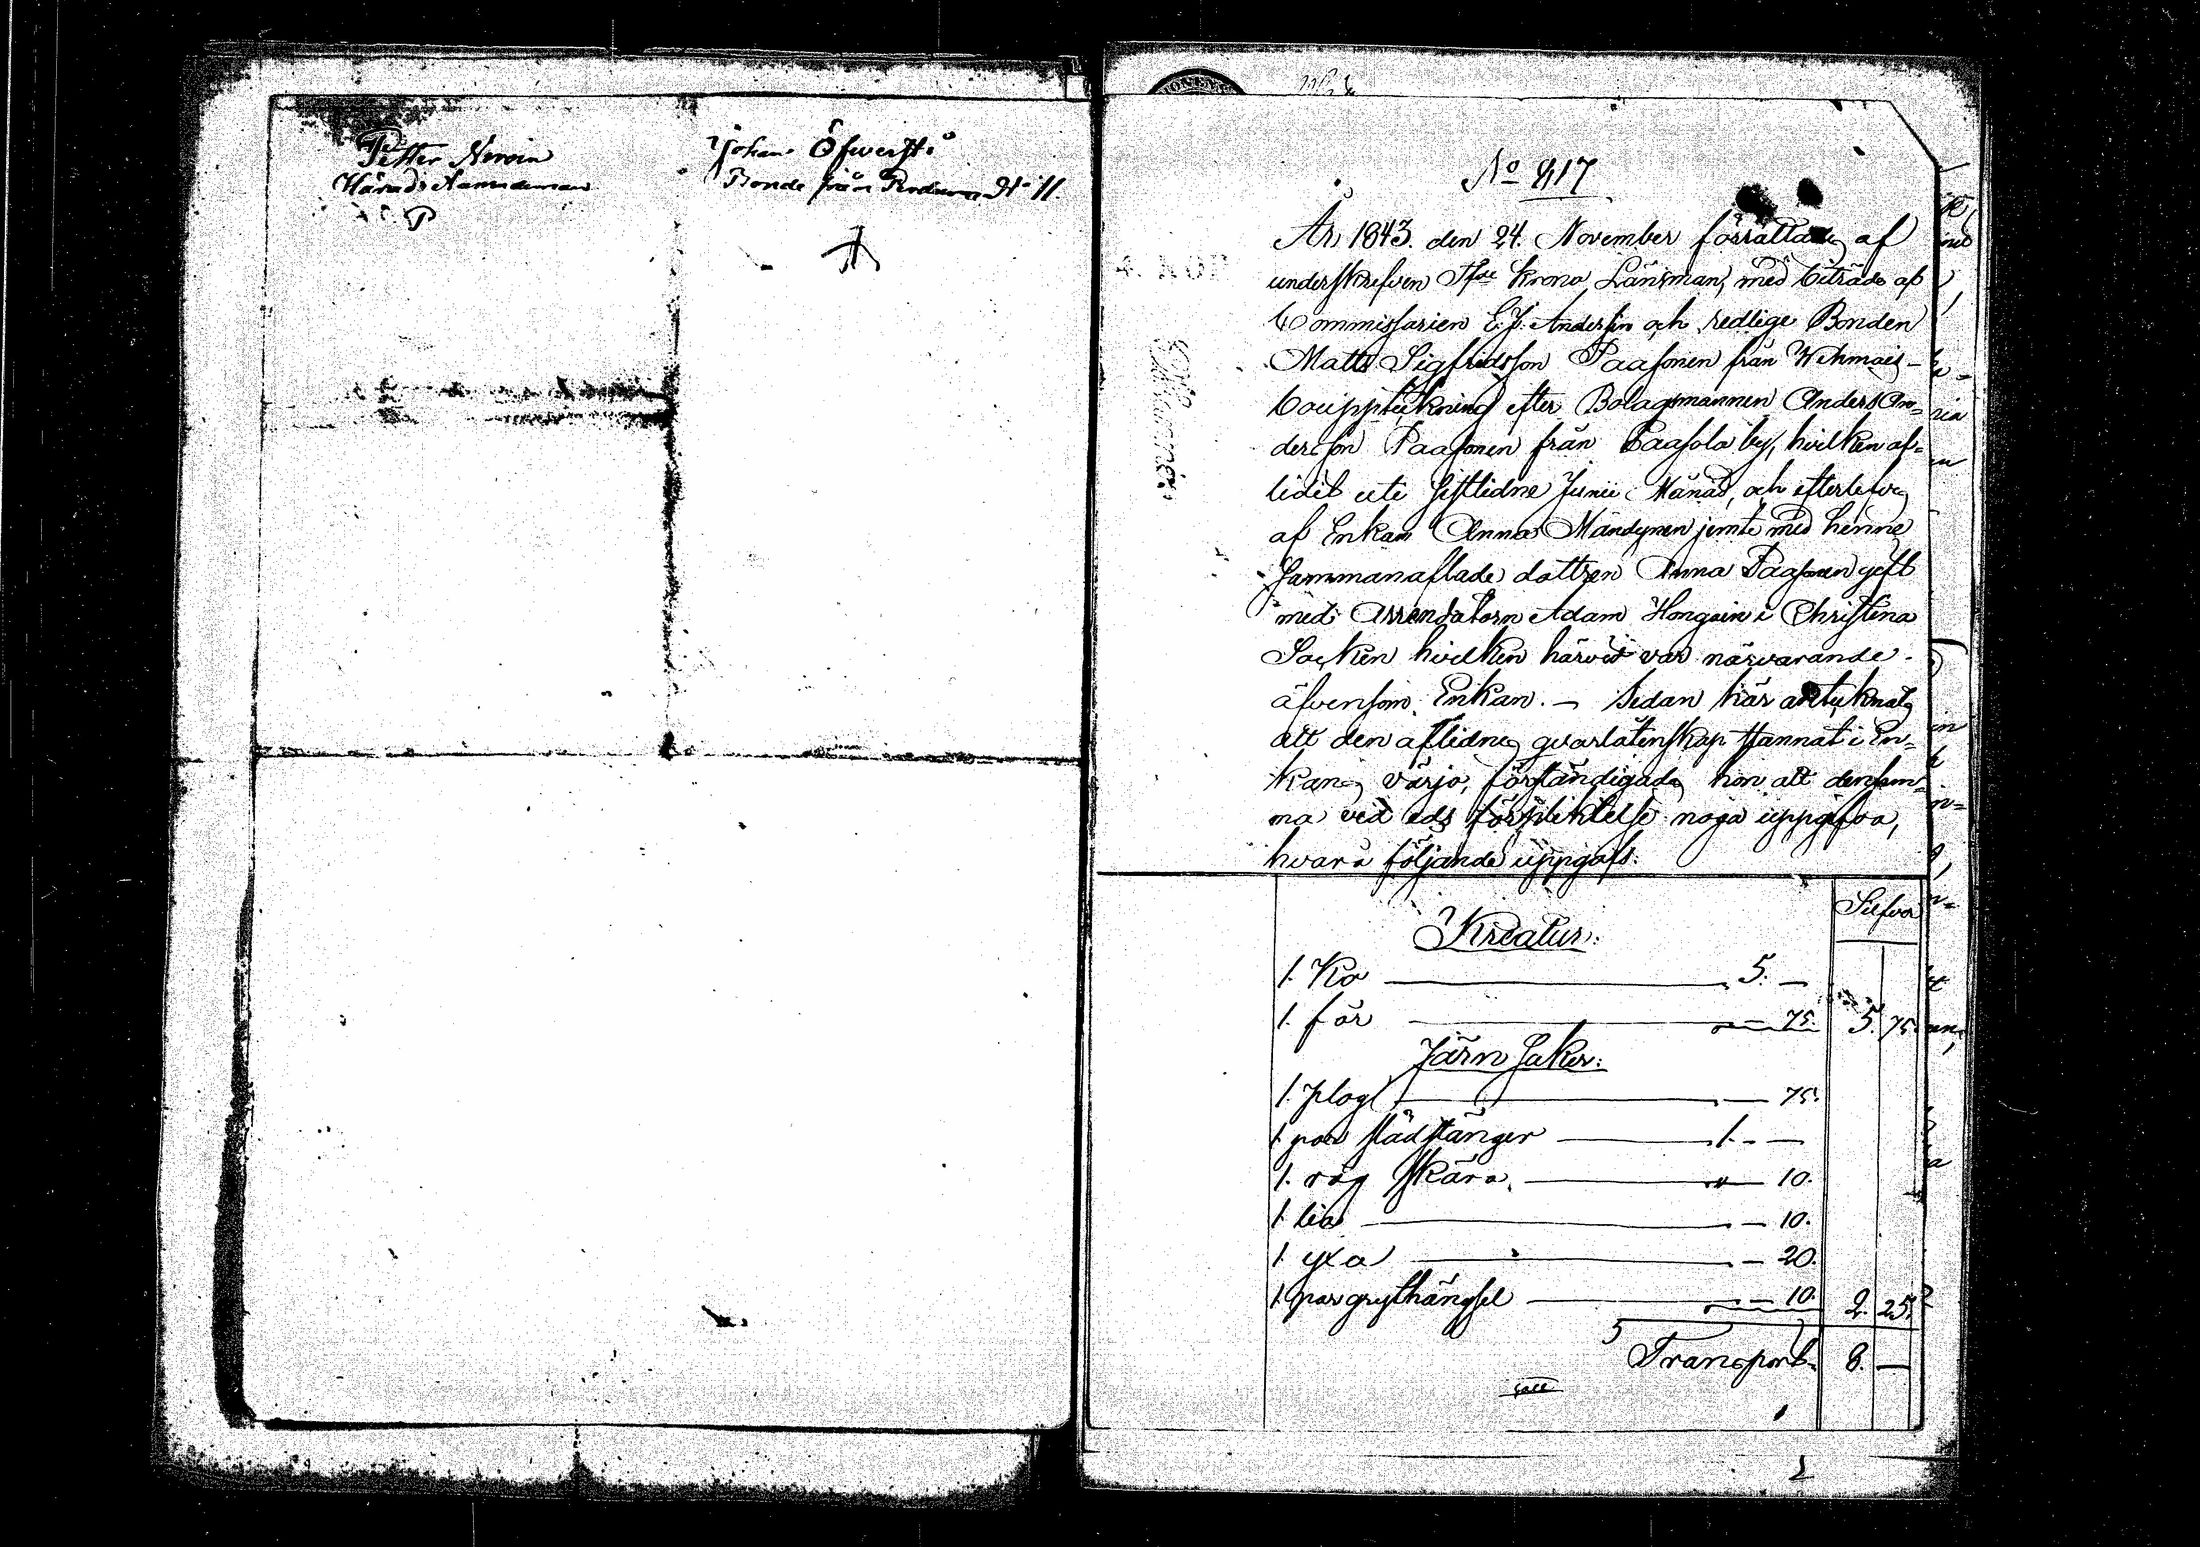 Petter Nevoin
Härads Nämndeman
P
Johan Öfversti
Bonde från No 11.
No 817
År 1843. den 24. November förrättades af
underskrefven Tfve Krono Länsman, med biträde af
Commissarien E. J. Andersin och redlige Bonden
Matts Sigfridsson Paasonen från Wehmais-
bouppteckning efter Bolagsmannen Anders An=
dersson Paasonen från Paasola by, hvilken af=
lidit uti sistlidne Junii Månad, och efterlefves
af Enkan Anna Mändynen jemte med henne
sammanaflade dottren Anna Paasonen gift
med Arrendatorn Adam Hongoin i Christina
Socken hvilken härvid var närvarande
äfvensom Enkan. — Sedan här antecknats
att den aflidnes qvarlåtenskap stannat i En=
kans värjo, förständigades hon att densam=
ma vid eds förpliktelse noga uppgifva,
hvarå följande uppgafs:
Silfver
Kreatur:
1. Ko — 5. —
1. får — 75. 5. 75.
Järn Saker:
1. plog — 75.
1. par städstänger — 1. —
1. råg skära — 10.
1. lia — 10.
1. yxa — 20.
1. par grythängsel — 10. 2. 25.
Transport 8. —